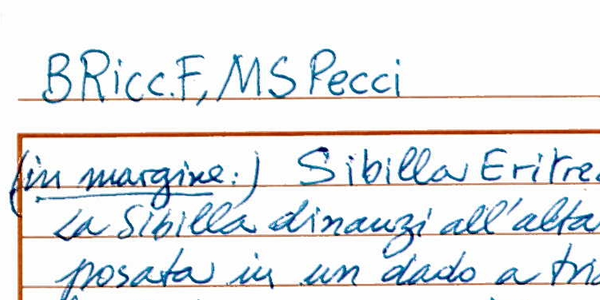 BRicc.F, MS Pecci
(in margine:) Sibilla Eritre
La Sibilla dinanzi all'alta
posata in un dado a tri